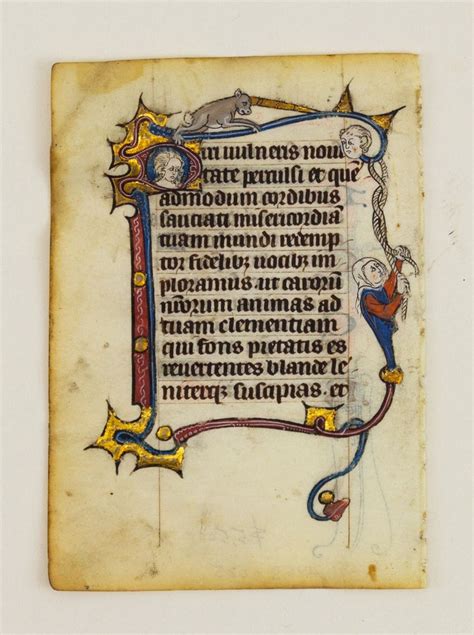 Diri uulneris noui
tate perculsi et que
admodum cordibus
sauciati misericordiā
tuam mundi redemp
tor fidelibꝫ uocibꝫ im
ploramus. ut carorum
nr̄orum animas ad
tuam clementiam
qui fons pietatis es
reuertentes blande le
niterqꝫ suscipias. et